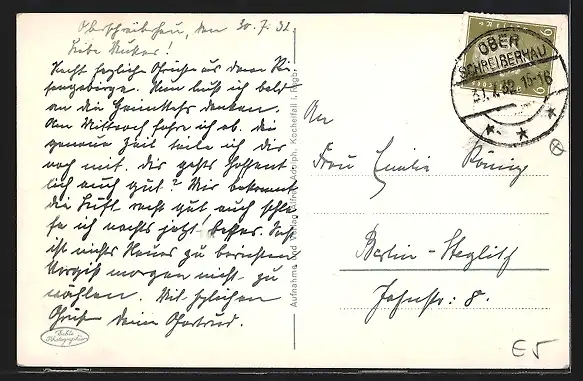 Oberschreiberhau, den 30.7.32
Liebe Mutter!
Recht herzliche Grüsse aus dem Ri-
sengebirge. Nun muß ich bald
an die Heimkehr denken.
Am Mittwoch fahre ich ab. die
genaue Zeit teile ich dir
noch mit. Dir gehts hoffent-
lich auch gut? Mir bekommt
die Luft recht gut auch schla-
fe ich nachts jetzt besser. Sonst
ist nichts Neues zu berichten
Vergiß morgen nicht zu
wählen. Mit herzlichen
Grüßen Deine Gertrud.
Echte Photographie
Aufnahme und Verlag Alfred Adolph, Kochelfall i. Rsgb.
OBER
SCHREIBERHAU
32 15-16
6
An
Frau Emilie König
Berlin-Steglitz
Jahnstr: 8.
E5